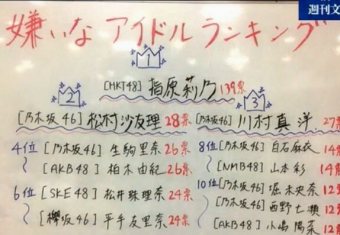 週刊文
嫌いなアイドルランキング
1
[HKT48] 指原莉乃 139票
2
3
[乃木坂46] 松村沙友理 28票
[乃木坂46] 川村真洋 27票
4位 [乃木坂46] 生駒里奈 26票
[AKB48] 柏木由紀 26票
6位 [SKE48] 松井珠理奈 24票
[欅坂46] 平手友里奈 24票
8位 [乃木坂46] 白石麻衣 14票
[NMB48] 山本彩 14
10位 [乃木坂46] 堀未央奈 12
[乃木坂46] 西野七瀬 12
[AKB48] 小嶋陽菜 12